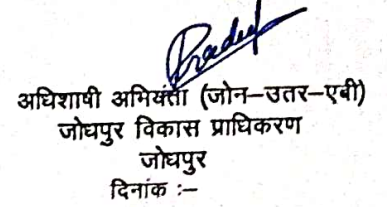 Pradeep
अधिशाषी अभियंता (जोन–उतर–एबी)
जोधपुर विकास प्राधिकरण
जोधपुर
दिनांक :–